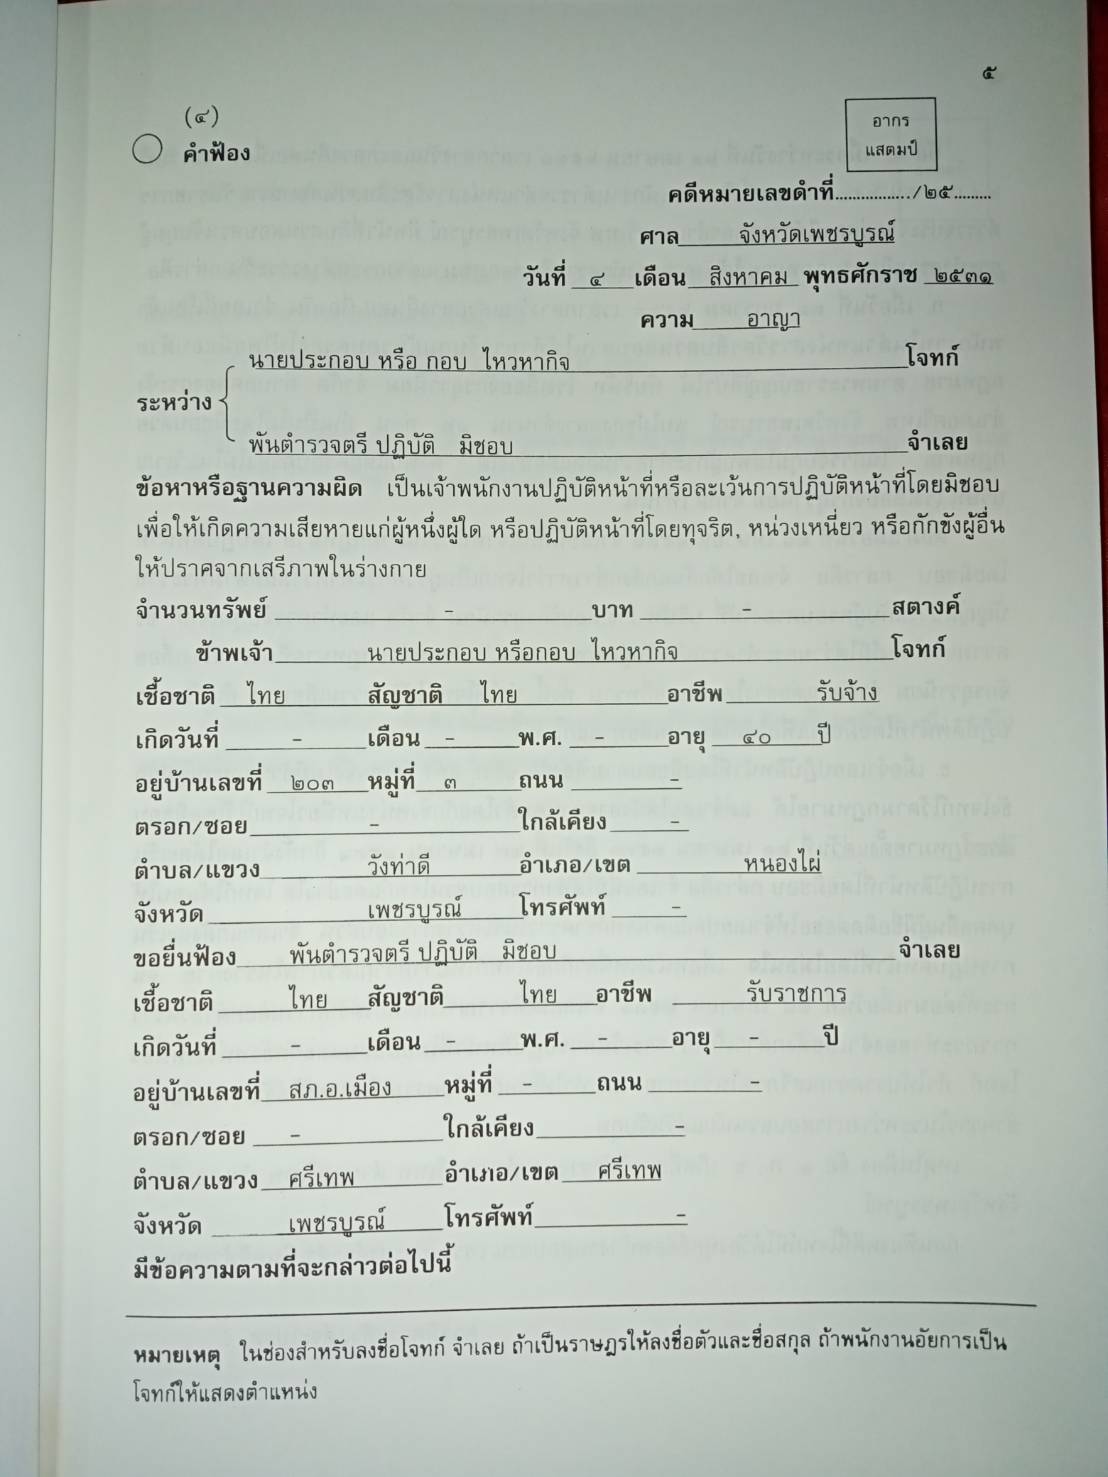 ๕
(๔)
อากร
แสตมป์
คำฟ้อง
คดีหมายเลขดำที่................/๒๕.........
ศาล จังหวัดเพชรบูรณ์
วันที่ ๔ เดือน สิงหาคม พุทธศักราช ๒๕๓๑
ความ อาญา
นายประกอบ หรือ กอบ ไหวหากิจ โจทก์
ระหว่าง
พันตำรวจตรี ปฏิบัติ มิชอบ จำเลย
ข้อหาหรือฐานความผิด เป็นเจ้าพนักงานปฏิบัติหน้าที่หรือละเว้นการปฏิบัติหน้าที่โดยมิชอบ
เพื่อให้เกิดความเสียหายแก่ผู้หนึ่งผู้ใด หรือปฏิบัติหน้าที่โดยทุจริต, หน่วงเหนี่ยว หรือกักขังผู้อื่น
ให้ปราศจากเสรีภาพในร่างกาย
จำนวนทรัพย์ - บาท - สตางค์
ข้าพเจ้า นายประกอบ หรือกอบ ไหวหากิจ โจทก์
เชื้อชาติ ไทย สัญชาติ ไทย อาชีพ รับจ้าง
เกิดวันที่ - เดือน - พ.ศ. - อายุ ๔๐ ปี
อยู่บ้านเลขที่ ๒๐๓ หมู่ที่ ๓ ถนน
ตรอก/ซอย - ใกล้เคียง -
ตำบล/แขวง วังท่าดี อำเภอ/เขต หนองไผ่
จังหวัด เพชรบูรณ์ โทรศัพท์ -
ขอยื่นฟ้อง พันตำรวจตรี ปฏิบัติ มิชอบ จำเลย
เชื้อชาติ ไทย สัญชาติ ไทย อาชีพ รับราชการ
เกิดวันที่ - เดือน - พ.ศ. - อายุ - ปี
อยู่บ้านเลขที่ สภ.อ.เมือง หมู่ที่ - ถนน -
ตรอก/ซอย - ใกล้เคียง -
ตำบล/แขวง ศรีเทพ อำเภอ/เขต ศรีเทพ
จังหวัด เพชรบูรณ์ โทรศัพท์ -
มีข้อความตามที่จะกล่าวต่อไปนี้
หมายเหตุ ในช่องสำหรับลงชื่อโจทก์ จำเลย ถ้าเป็นราษฎรให้ลงชื่อตัวและชื่อสกุล ถ้าพนักงานอัยการเป็น
โจทก์ให้แสดงตำแหน่ง